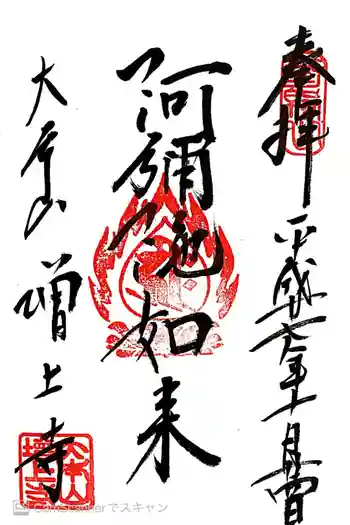 奉拝
平成廿七年十一月三日
阿彌陀如来
大本山
増上寺
CamScannerでスキャン